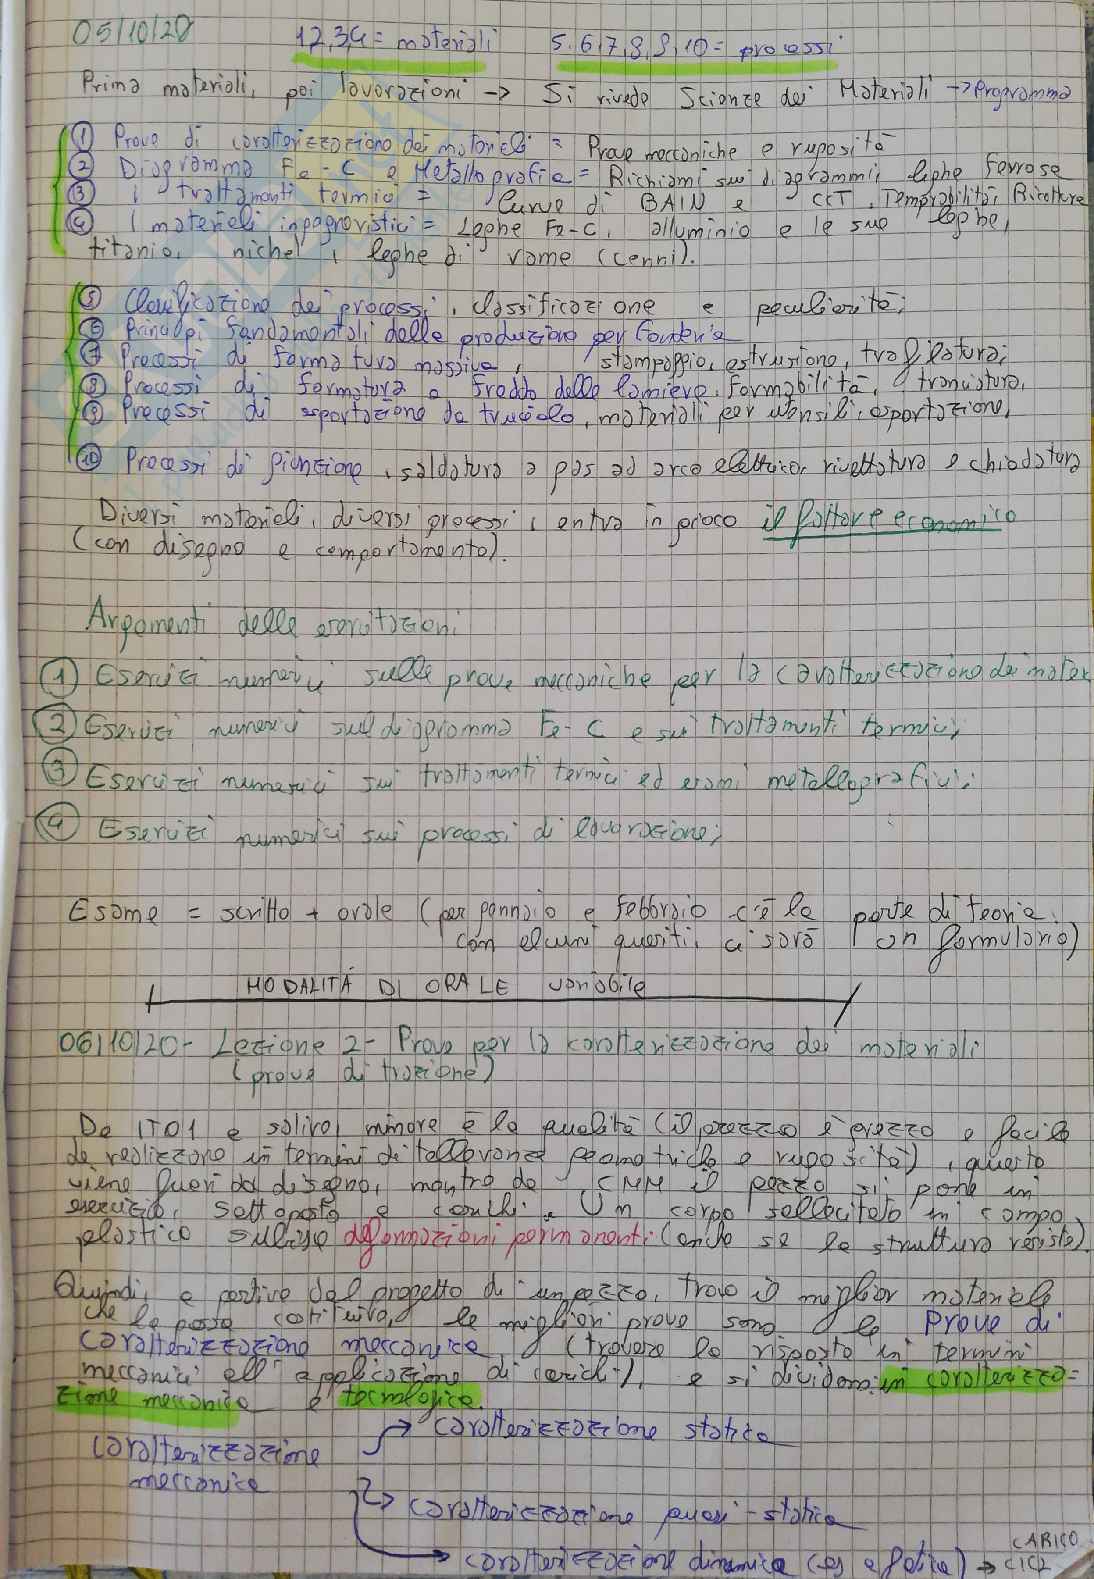 05/10/20 1,2,3,4 = materiali 5,6,7,8,9,10 = processi
Prima materiali, poi lavorazioni → Si rivede Scienze dei Materiali → Programma
① Prove di caratterizzazione dei materiali = Prove meccaniche e rugosità
② Diagramma Fe-C e Metallografia = Richiami sui diagrammi, leghe ferrose
③ I trattamenti termici = Curve di BAIN e CCT, Temprabilità, Ricottura
④ I materiali ingegneristici = Leghe Fe-C, alluminio e le sue leghe,
titanio, nichel, leghe di rame (cenni).
⑤ Classificazione dei processi, classificazione e peculiarità;
⑥ Principi fondamentali della produzione per fonderia
⑦ Processi di formatura massiva, stampaggio, estrusione, trafilatura;
⑧ Processi di formatura a freddo delle lamiere, formabilità, tranciatura,
⑨ Processi di asportazione da truciolo, materiali per utensili, asportazione,
⑩ Processi di giunzione, saldatura a gas ad arco elettrico, rivettatura e chiodatura
Diversi materiali, diversi processi, entra in gioco il fattore economico
(con disegno e comportamento).
Argomenti delle esercitazioni
① Esercizi numerici sulle prove meccaniche per la caratterizzazione dei mater
② Esercizi numerici sul diagramma Fe-C e sui trattamenti termici;
③ Esercizi numerici sui trattamenti termici ed esami metallografici;
④ Esercizi numerici sui processi di lavorazione;
Esame = scritto + orale (per gennaio e febbraio c'è la parte di teoria
con alcuni quesiti, ci sarà un formulario)
MODALITÁ DI ORALE variabile
06/10/20 - Lezione 2 - Prove per la caratterizzazione dei materiali
(prove di trazione)
Da IT01 a salire, minore è la qualità (il pezzo è grezzo e facile
da realizzare in termini di tolleranza geometriche e rugosità), questo
viene fuori dal disegno, mentre da CMM il pezzo si pone in
esercizio, sottoposto a carichi. Un corpo sollecitato in campo
plastico subisce deformazioni permanenti (anche se la struttura resiste).
Quindi, a partire dal progetto di un pezzo, trovo il miglior materiale
che lo possa costituire, le migliori prove sono le Prove di
caratterizzazione meccanica, (trovare la risposta in termini
meccanici all'applicazione di carichi), e si dividono in caratterizza=
zione meccanica e tecnologica.
caratterizzazione → caratterizzazione statica
meccanica
→ caratterizzazione quasi-statica
→ caratterizzazione dinamica (es a fatica) → CARICO
CICL